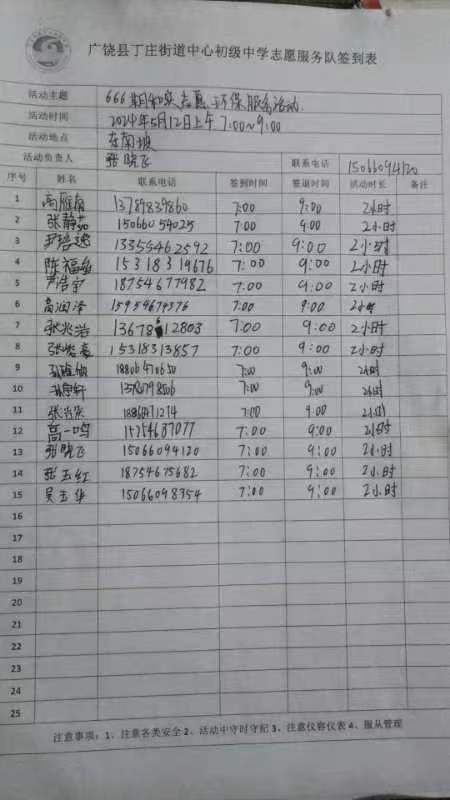 广饶县丁庄街道中心初级中学志愿服务队签到表
活动主题 666 志愿环保服务活动
活动时间 2024年5月12日上午7:00~9:00
活动地点 东南坡
活动负责人 张晓飞 联系电话 15066094120
序号 姓名 联系电话 签到时间 签退时间 活动时长 备注
1 13789839860 7:00 9:00 2小时
2 张静茹 1506605 7:00 9:00 2小时
3 13355462592 7:00 9:00 2小时
4 陈福 15318314676 7:00 9:00 2小时
5 18754677982 7:00 9:00 2小时
6 高润泽 15954674376 7:00 9:00 2小时
7 张兆浩 7:00 9:00 2小时
8 张 15318313857 7:00 9:00 2小时
9 7:00 9:00 2小时
10 7:00 9:00 2小时
11 7:00 9:00 2小时
12 高一鸣 15254687077 7:00 9:00 2小时
13 张晓飞 15066094120 7:00 9:00 2小时
14 张玉红 18754675682 7:00 9:00 2小时
15 吴玉华 15066098354 7:00 9:00 2小时
16
17
18
19
20
21
22
23
24
25
注意事项：1、注意各类安全 2、活动中守时守纪 3、注意仪容仪表 4、服从管理